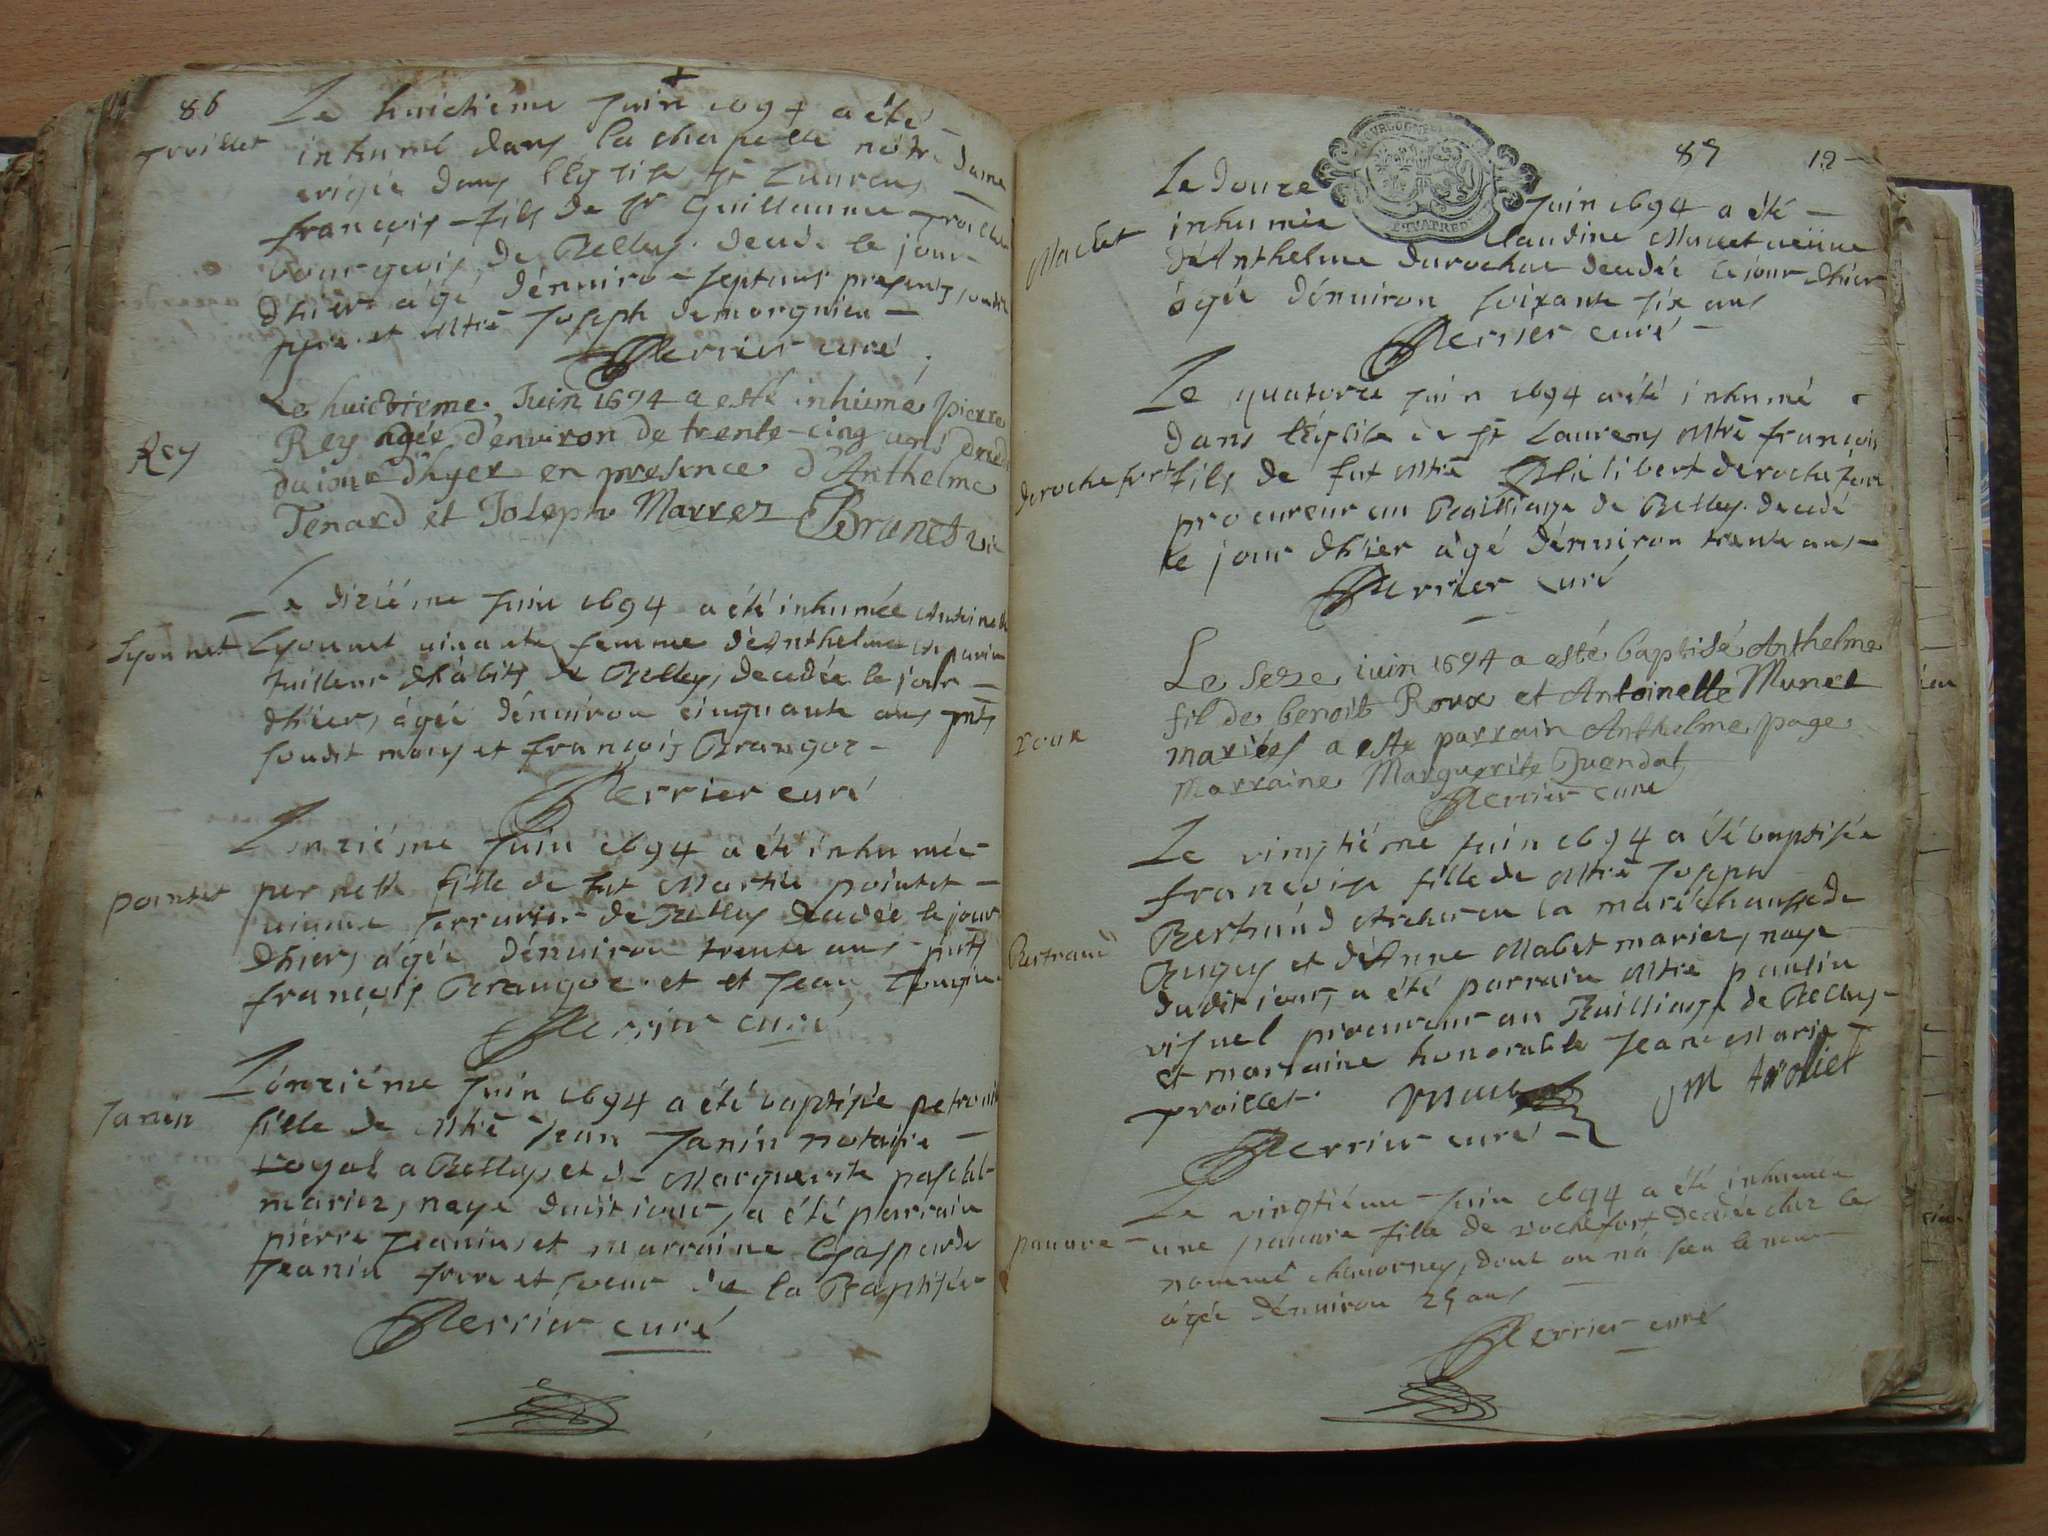 86
Le huictiéme Juin 1694 a été
Troillet
inhumé dans la chapelle nôtre dame
erigée dans l'Eglise St Laurens
françois fils de Sr Guillaume Troillet
bourgeois de Belley decedé le jour
d'hier âgé d'enuiron sept ans presents soudit
pere et Mtre Joseph demorgnieu
Perrier curé
Le huictieme Juin 1694 a esté inhumé pierre
Rey
Rey agée d'environ de trente-cinq ans deced
du iour d'hyer en presence d'Anthelme
Tenard et Joseph Marrez Brunet vic
Le diziéme Juin 1694 a été inhumée Antoinette
Lyonnet
Lyonnet viuante femme d'Anthelme
tailleur d'habits de Belley, decedée le jour
d'hier, âgée d'enuiron cinquante ans pnts
soudit mary et françois Brangoz
Perrier curé
L'onziéme Juin 1694 a été inhumée
pointet
pernette fille de fut Martin pointet
viuant serrurier de Belley decedée le jour
d'hier, âgée d'enuiron trente ans pnts
françois Brangoz et et Jean
Perrier curé
L'onziéme Juin 1694 a été baptisée petronille
Janin
fille de Mtre Jean Janin notaire
royal a Belley, et de Marguerite paschal
mariez, naye dudit iour, a été parrain
pierre Jeanin, et marraine Gasparde
Jeanin frere et soeur de la Baptisée
Perrier curé
87
12
Le douze Juin 1694 a été
Maclet
inhumée Claudine Maclet veüue
d'Anthelme durochat decedée le jour d'hier
âgée d'enuiron soixante six ans
Perrier curé
Le quatorze Juin 1694 a été inhumé
dans l'Eglise de St Laurens Mtre françois
derochefort
fils de fut Mtre Philibert derochefort
procureur au Bailliage de Belley decedé
le jour d'hier âgé d'enuiron trente ans
Perrier curé
Le seze iuin 1694 a esté baptisé Anthelme
fil de benoit Roux et Antoinette Munet
roux
mariés a esté parrain Anthelme page
marraine Marguerite Quendat
Perrier curé
Le vingtiéme Juin 1694 a été baptisée
françoise fille de Mtre Joseph
Bertrand
Bertrand Archer en la maréchaussée de
Bugey et d'Anne Mabet mariez, naye
dudit iour, a été parrain Mtre paulin
visuel procureur au Bailliage de Belley
et marraine honorable Jeane Marie
Troillet.
JM troliet
Perrier curé
Le vingtiéme Juin 1694 a été inhumée
pauure
une pauure fille de rochefort decedée chez les
nommé chamorney, dont on n'a sceu le nom
âgée d'enuiron 25 ans
Perrier curé